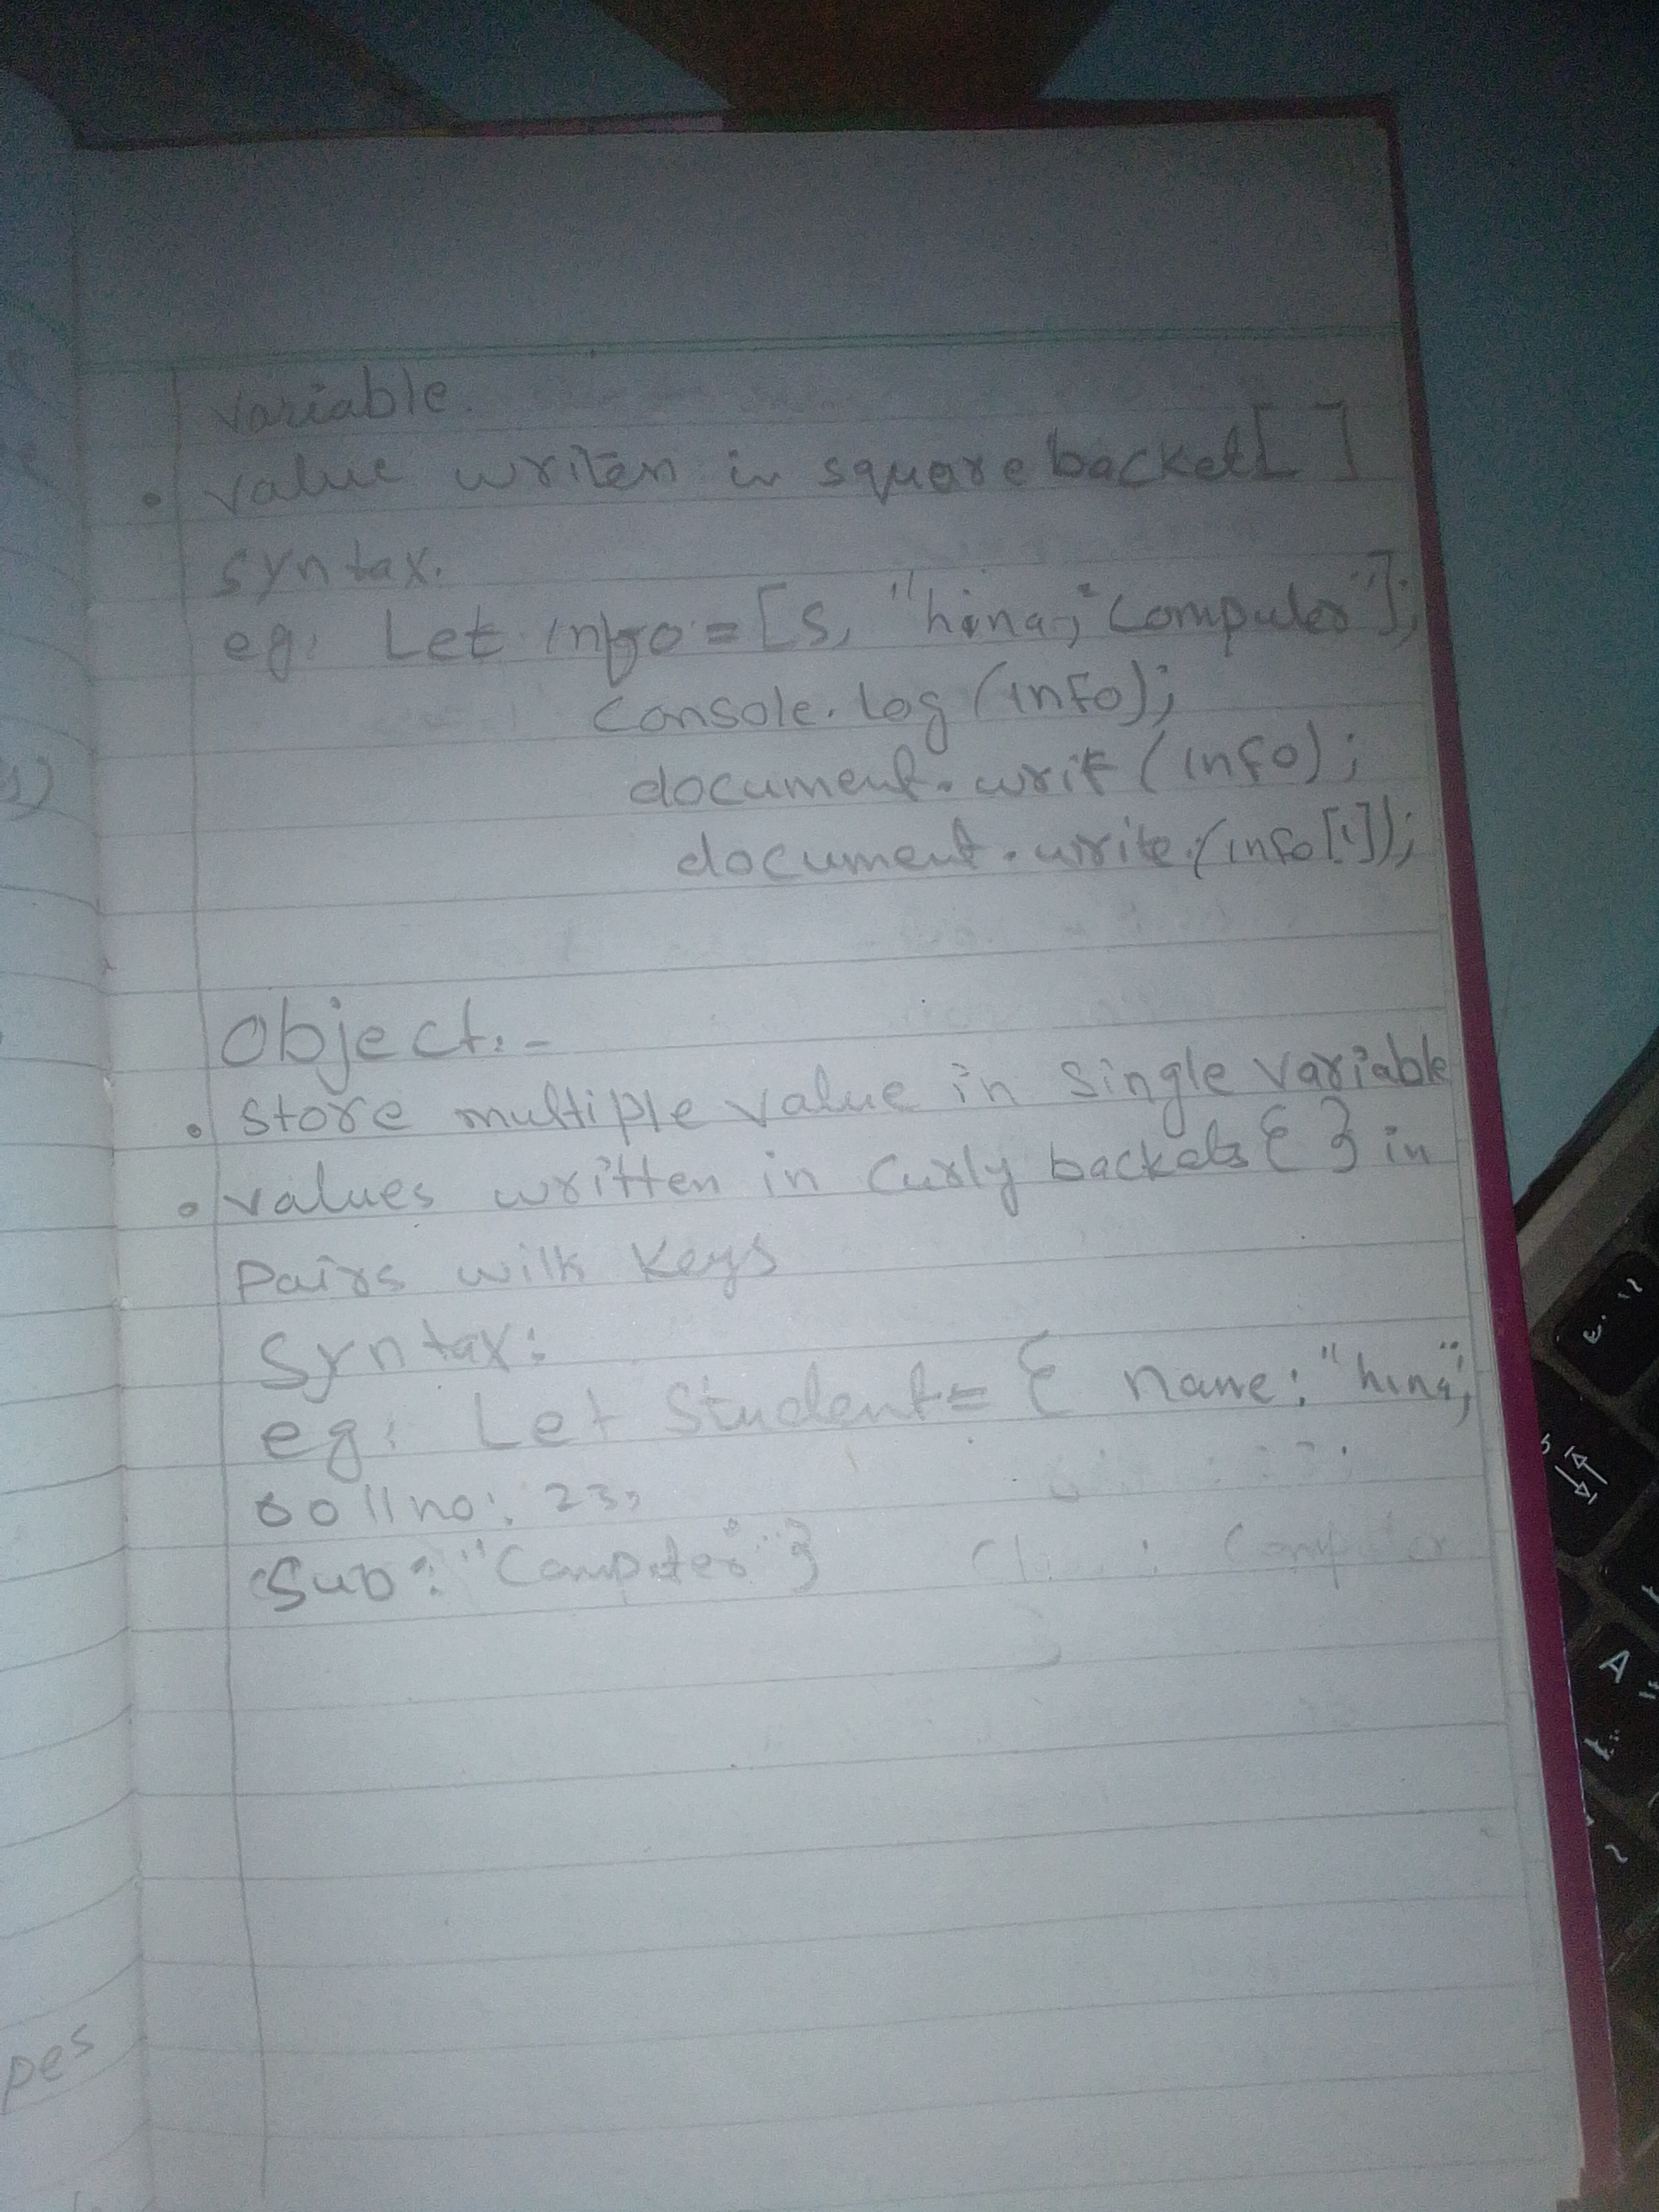 variable.
• value writen in square backet [ ]
syntax.
eg: Let info = [5, "hina", "Computer"];
Console.log (info);
document.writ (info);
document.write (info[1]);
Object:-
• Store multiple value in Single variable
• values written in Curly backets { } in
Pairs with Keys
Syntax:
eg: Let Student = { name: "hina",
rollno: 23,
Sub: "Computer" }
pes